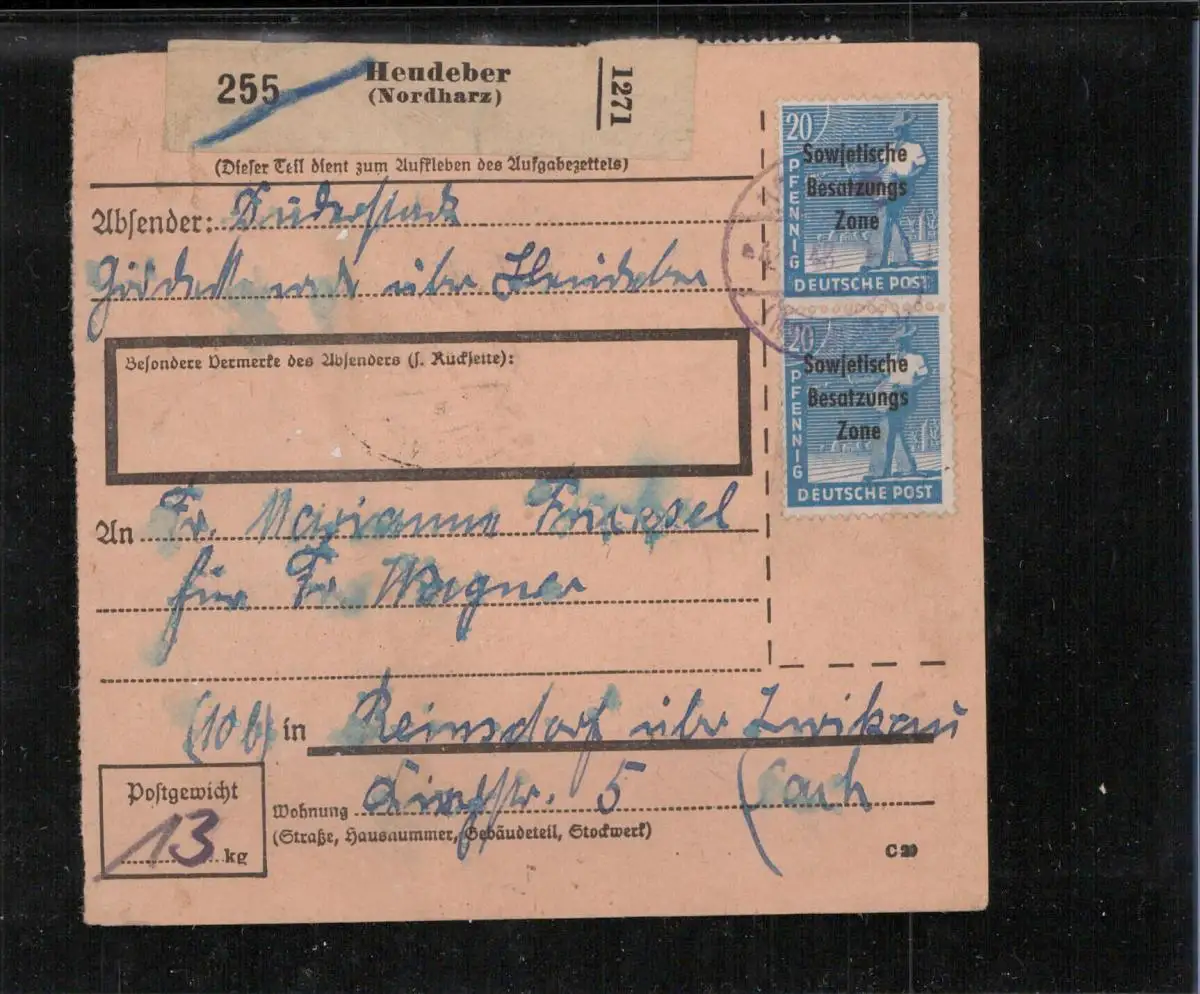 255 Heudeber
(Nordharz)
1271
(Dieser Teil dient zum Aufkleben des Aufgabezettels)
Absender: Duderstadt
über Heudeber
Besondere Vermerke des Absenders (s. Rückseite):
An Fr. Marianne
für Fr. Wagner
(10b) in Reinsdorf über Zwickau
Postgewicht
13 kg
Wohnung Kirchstr. 5 (Sach
(Straße, Hausnummer, Gebäudeteil, Stockwerk)
C 20
20
PFENNIG
Sowjetische
Besatzungs
Zone
DEUTSCHE POST
20
PFENNIG
Sowjetische
Besatzungs
Zone
DEUTSCHE POST